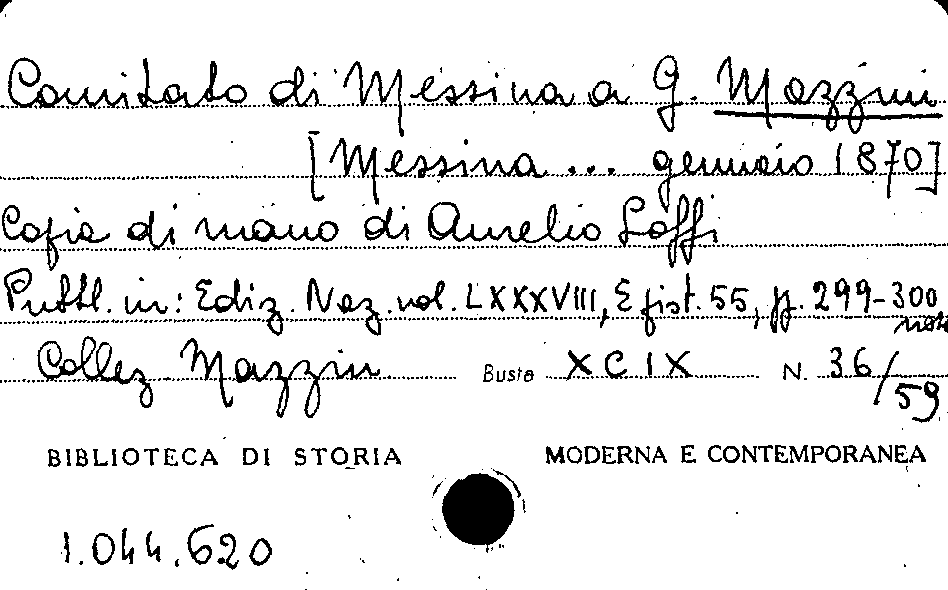 Comitato di Messina a G. Mazzini
[Messina ... gennaio 1870]
Copia di mano di Aurelio Saffi
Pubbl. in: Ediz. Naz. vol. LXXXVIII, Epist. 55, pp. 299-300
nota
Collez. Mazzini Busta XCIX N. 36/59
BIBLIOTECA DI STORIA MODERNA E CONTEMPORANEA
1.044.620